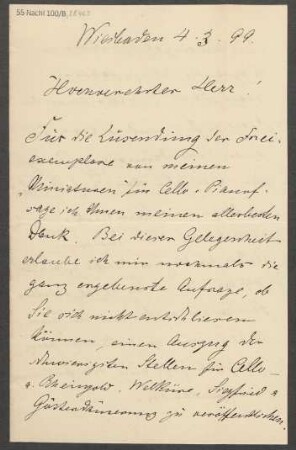 55 Nachl 100/B,
Wiesbaden 4. 3. 99.
Hochverehrter Herr!
Für die Zusendung der Frei-
exemplare von meinen
„Miniaturen" für Cello u. Pianof.
sage ich Ihnen meinen allerbesten
Dank. Bei dieser Gelegenheit
erlaube ich mir nochmals die
ganz ergebenste Anfrage, ob
Sie sich nicht entschliessen
können, einen Auszug der
schwierigsten Stellen für Cello
a. Rheingold, Walküre, Siegfried u.
Götterdämmerung zu veröffentlichen.